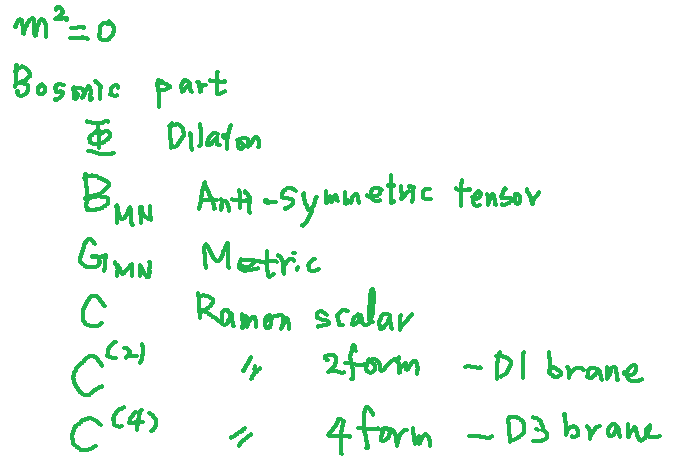 m² = 0
Bosonic part
Φ Dilaton
B_MN Anti-symmetric tensor
G_MN Metric
C Ramon scalar
C^(2) 〃 2 form - D1 brane
C^(4) 〃 4 form - D3 brane